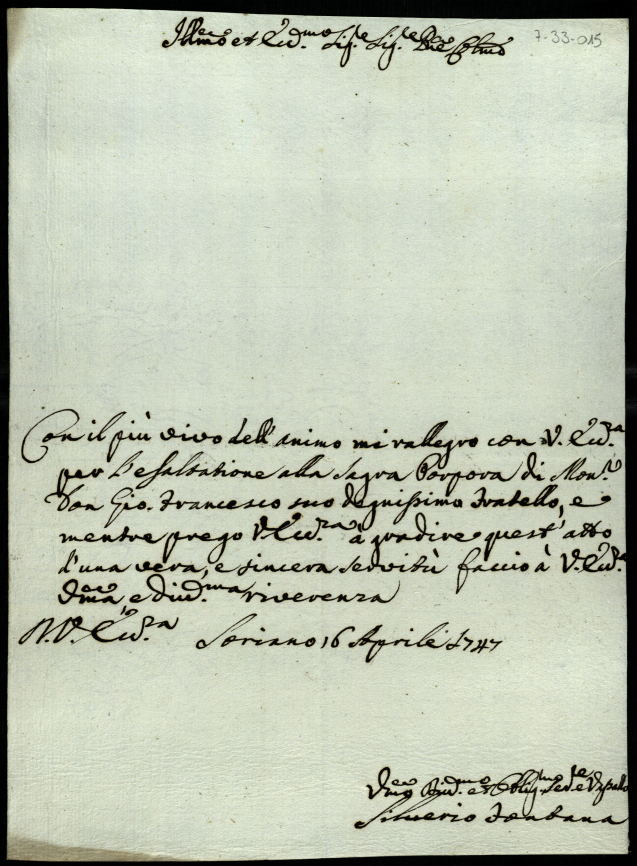 7-33-015
Ill.mo et Ecc.mo Sig.re Sig.re P.ne Col.mo
Con il più vivo dell'animo mi rallegro con V. Ecc.za
per L'essaltatione alla Sagra Porpora di Mon.r
Don Gio. Francesco suo degnissimo Fratello, e
mentre prego V. Ecc.za à gradire quest'atto
d'una vera, e sincera servitù faccio à V. Ecc.za
um.ma e div.ma riverenza
D. V. Ecc.za Soriano 16 Aprile 1747
Um.mo Div.mo et Oblig.mo Ser.re e Vassallo
Silverio Fontana